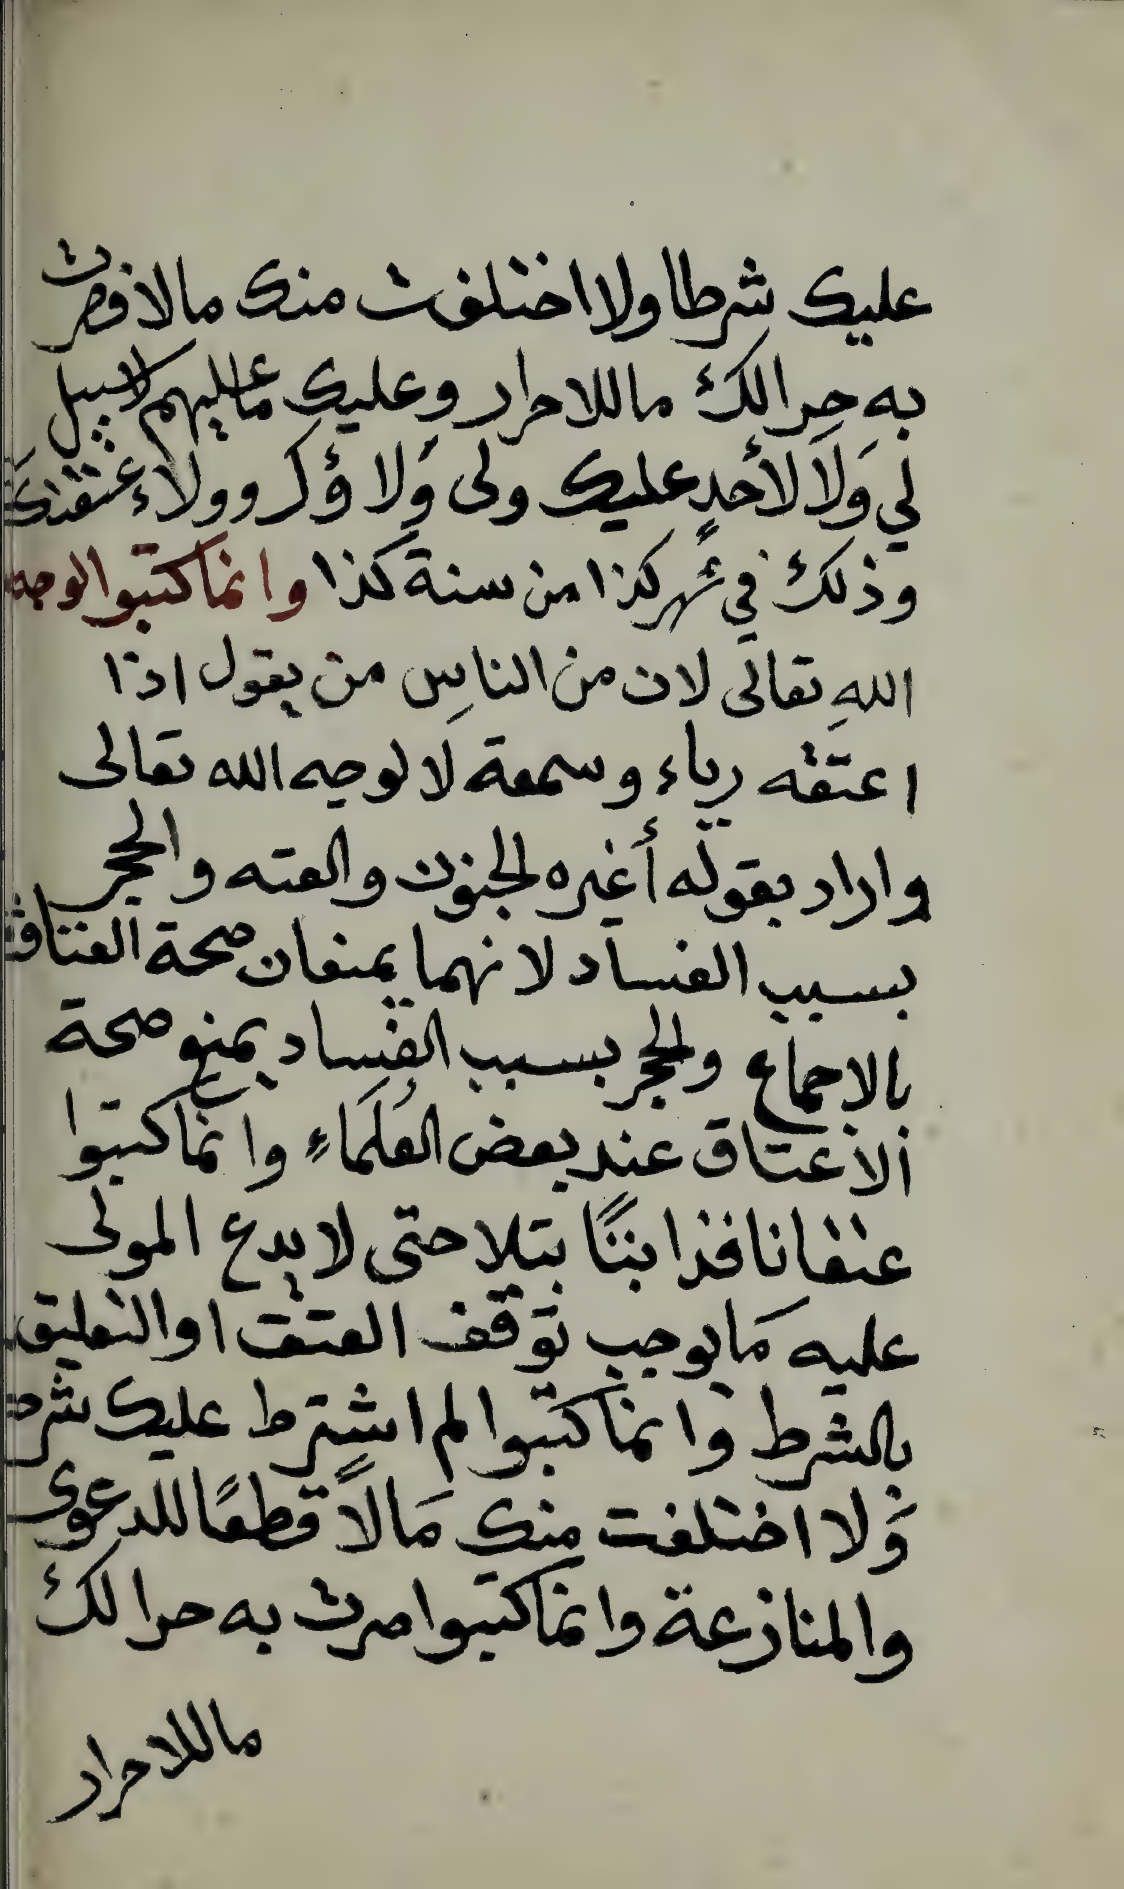 عليك شرطا ولا اختلفت منك مالا فصرت
به حرا لك ما للاحرار وعليك ما عليهم لا سبيل
لي وَلَا لأحدٍ عليك ولى وَلاؤك وولاء عتقتك
وذلك في شهر كذا من سنة كذا وانما كتبوا لوجه
اللهِ تعالى لان من الناس من يقول اذا
اعتقه رياء وسمعة لا لوجه الله تعالى
واراد بقوله أغيره لجنون والعته والحجر
بسبب الفساد لانهما يمنعان صحة العتاقة
بالاجماع والحجر بسبب الفساد يمنع صحة
الاعتاق عند بعض العُلَمَاءِ وانما كتبوا
عتقا نافذا بتتًا بتلا حتى لا يدع المولى
عليه مَا يوجب توقف العتق او التعليق
بالشرط وانما كتبوا لم اشترط عليك شرطا
وَلا اختلفت منك مَالاً قطعًا للدعوى
والمنازعة وانما كتبوا صرت به حرا لك
ما للاحرار